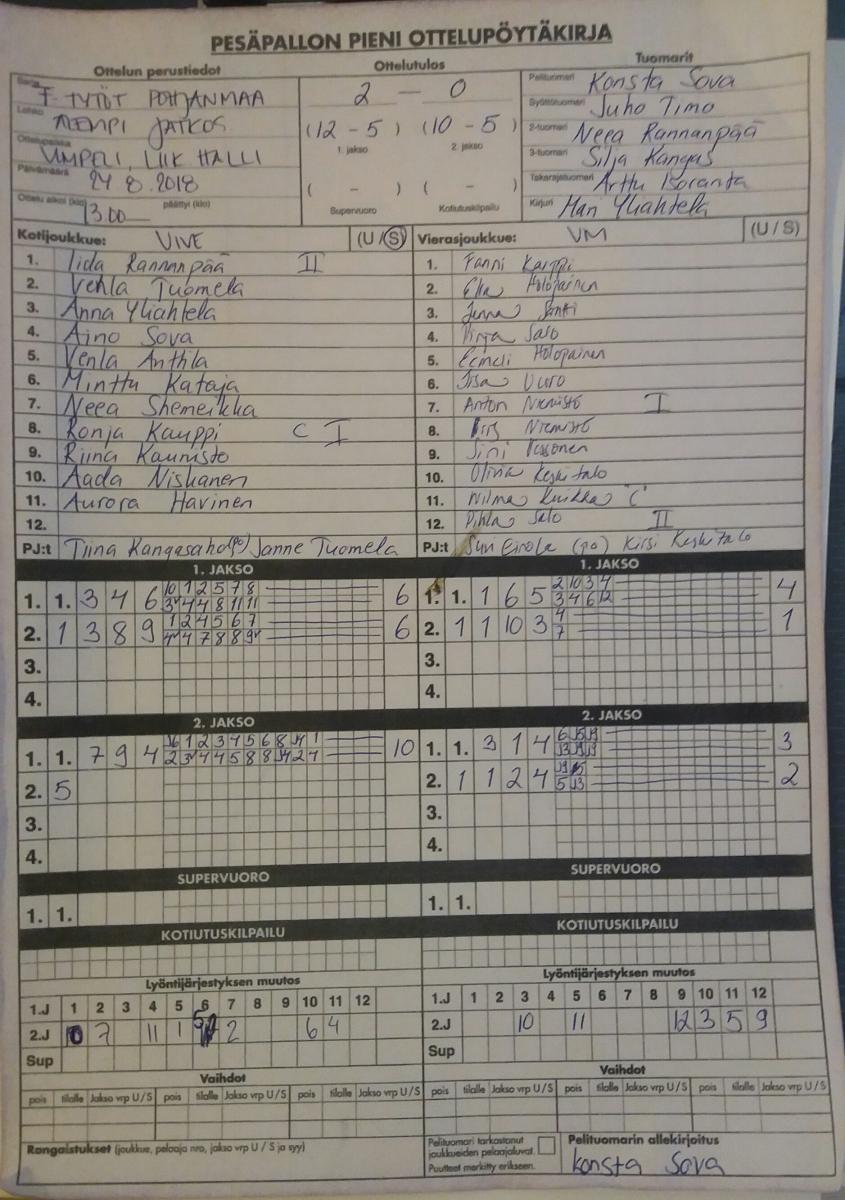 PESÄPALLON PIENI OTTELUPÖYTÄKIRJA
Ottelun perustiedot Ottelutulos Tuomarit
Sarja F-TYTÖT POHJANMAA
Lohko ALEMPI JATKOS
Ottelupaikka UMPELI, LIIK HALLI
Päivämäärä 24 8.2018
Ottelu alkoi (klo) 13.00 päättyi (klo)
2 — 0
(12 - 5) (10 - 5)
1. jakso 2. jakso
( - ) ( - )
Supervuoro Kotiutuskilpailu
Pelituomari Konsta Sova
Syöttötuomari Juho Timo
2-tuomari Neea Rannanpää
3-tuomari Silja Kangas
Takarajatuomari Arttu Isoranta
Kirjuri Mari Yliahtela
Kotijoukkue: VIVE (U/S)
1. Iida Rannanpää II
2. Vehla Tuomela
3. Anna Yliahtela
4. Aino Sova
5. Venla Anthila
6. Minttu Kataja
7. Neea Shemeikka
8. Ronja Kauppi C I
9. Riina Kaunisto
10. Aada Niskanen
11. Aurora Havinen
12.
PJ:t Tiina Kangasaho(po) Janne Tuomela
Vierasjoukkue: VM (U/S)
1. Fanni Karppi
2. Holopainen
3. Jenna
4. Pinja Salo
5. Eemeli Holopainen
6. Iisa Uuro
7. Anton Niemistö I
8. Niemistö
9. Jini
10. Olivia Keskitalo
11. Wilma Kuikka "C"
12. Pihla Salo II
PJ:t Suvi Einola (po) Kirsi Keskitalo
1. JAKSO
1. 1. 3 4 6 10 1 2 5 7 8 6
3 4 4 8 11 11
2. 1 3 8 9 1 2 4 5 6 7 6
4 4 7 8 8 9
3.
4.
1. JAKSO
1. 1. 1 6 5 2 10 3 4 4
3 4 6 12
2. 1 1 10 3 4 1
7
3.
4.
2. JAKSO
1. 1. 7 9 4 1 2 3 4 5 6 8 1 10
2 3 4 4 5 8 8 2 4
2. 5
3.
4.
2. JAKSO
1. 1. 3 1 4 6 3
2. 1 1 2 4 2
5
3.
4.
SUPERVUORO
1. 1.
SUPERVUORO
1. 1.
KOTIUTUSKILPAILU
KOTIUTUSKILPAILU
Lyöntijärjestyksen muutos
1.J 1 2 3 4 5 6 7 8 9 10 11 12
2.J 10 7 11 1 5 2 6 4
Sup
Lyöntijärjestyksen muutos
1.J 1 2 3 4 5 6 7 8 9 10 11 12
2.J 10 11 12 3 5 9
Sup
Vaihdot
pois tilalle Jakso vrp U/S pois tilalle Jakso vrp U/S pois tilalle Jakso vrp U/S
Vaihdot
pois tilalle Jakso vrp U/S pois tilalle Jakso vrp U/S pois tilalle Jakso vrp U/S
Rangaistukset (joukkue, pelaaja nro, jakso vrp U / S ja syy)
Pelituomari tarkastanut
joukkueiden pelaajaluvat.
Puutteet merkitty erikseen.
Pelituomarin allekirjoitus
Konsta Sova